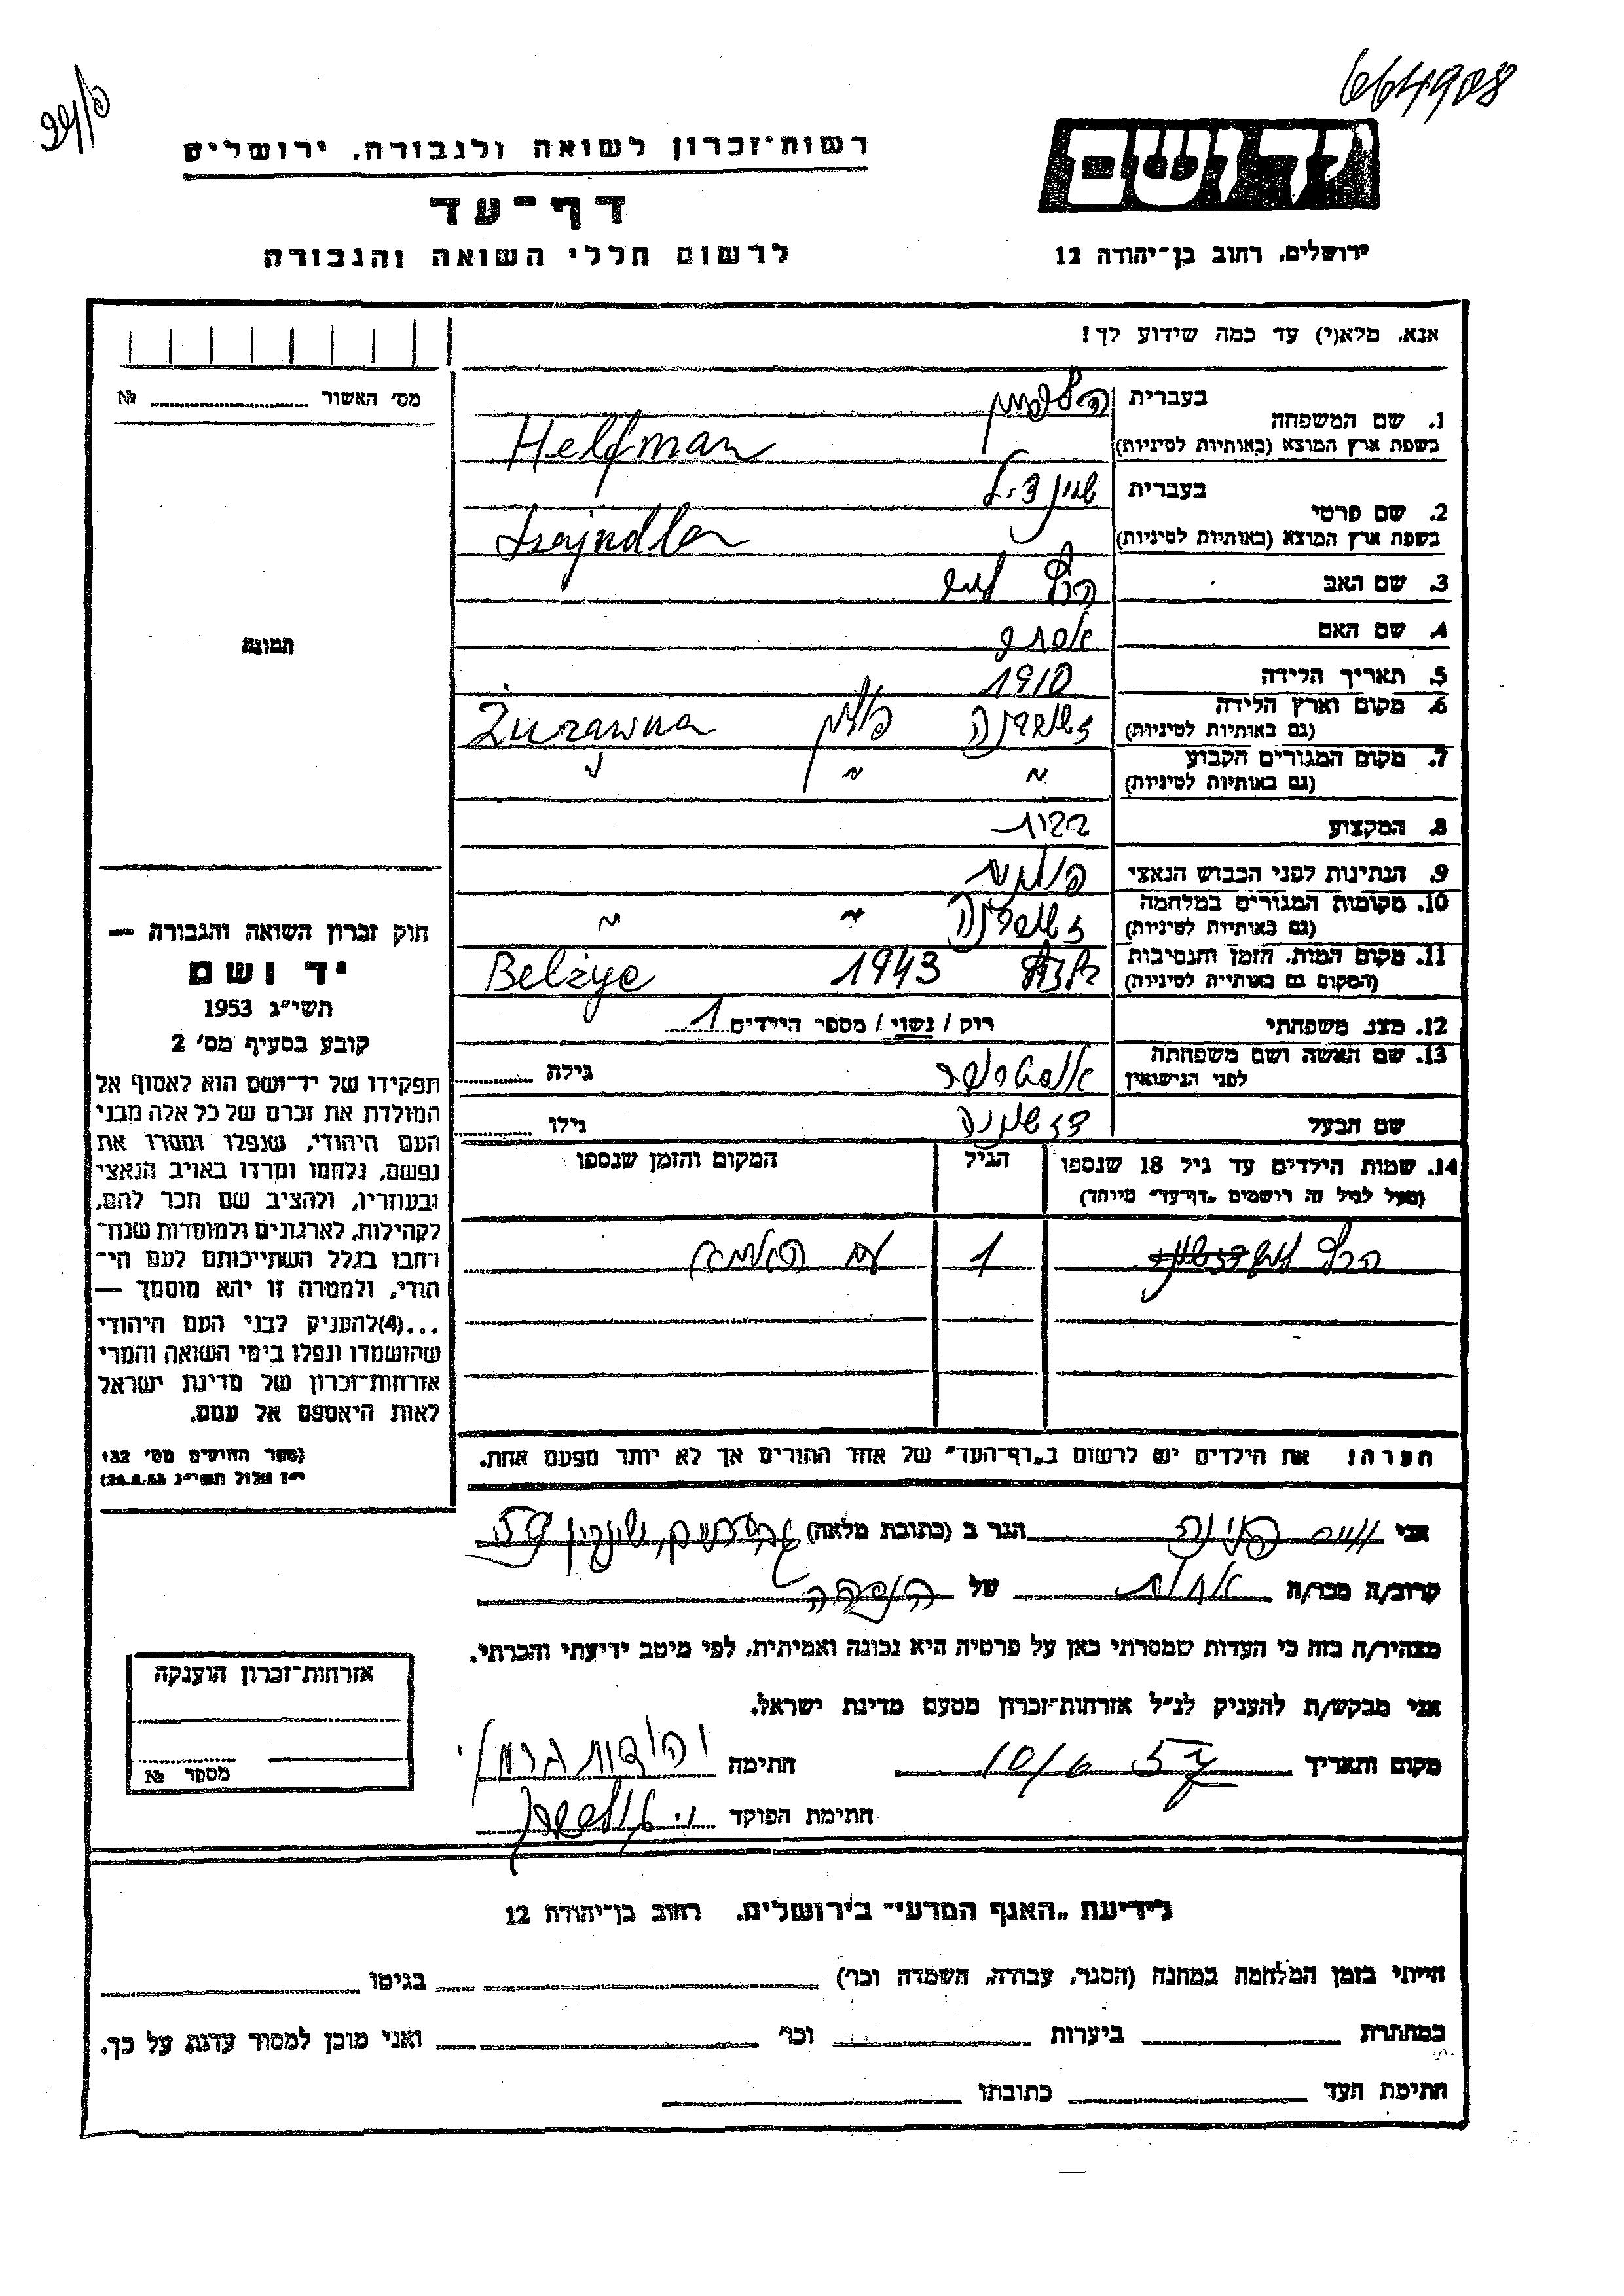 664908
רשות־זכרון לשואה ולגבורה, ירושלים
דף־עד
לרשום חללי השואה והגבורה
ידושם
ירושלים, רחוב בן־יהודה 12
אנא, מלא(י) עד כמה שידוע לך!
מס׳ האשור № 
1. שם המשפחה
בעברית הלפמן
בשפת ארץ המוצא (באותיות לטיניות) Helfman
2. שם פרטי
בעברית שיינדיל
בשפת ארץ המוצא (באותיות לטיניות) Szajndla
3. שם האב
4. שם האם אסתר
5. תאריך הלידה 1910
6. מקום וארץ הלידה
(גם באותיות לטיניות) פולין Żurawna
7. מקום המגורים הקבוע
(גם באותיות לטיניות) " "
8. המקצוע
9. הנתינות לפני הכבוש הנאצי פולנית
10. מקומות המגורים במלחמה
(גם באותיות לטיניות) " "
11. מקום המות, הזמן והנסיבות
(המקום גם באותיות לטיניות) 1943 Belżyce
12. מצב משפחתי רוק / נשוי / מספר הילדים 1
13. שם האשה ושם משפחתה
לפני הנישואין גילה
שם הבעל גילו
14. שמות הילדים עד גיל 18 שנספו
(מעל לגיל זה רושמים „דף־עד" מיוחד)
הגיל
המקום והזמן שנספו
1 עם האמא
הערה: את הילדים יש לרשום ב„דף־העד" של אחד ההורים אך לא יותר מפעם אחת.
תמונה
חוק זכרון השואה והגבורה —
יד ושם
תשי״ג 1953
קובע בסעיף מס׳ 2
תפקידו של יד־ושם הוא לאסוף אל
המולדת את זכרם של כל אלה מבני
העם היהודי, שנפלו ומסרו את
נפשם, נלחמו ומרדו באויב הנאצי
ובעוזריו, ולהציב שם וזכר להם,
לקהילות, לארגונים ולמוסדות שנח־
רבו בגלל השתייכותם לעם הי־
הודי, ולמטרה זו יהא מוסמך —
...(4)להעניק לבני העם היהודי
שהושמדו ונפלו בימי השואה והמרי
אזרחות־זכרון של מדינת ישראל
לאות היאספם אל עמם.
(ספר החוקים מס׳ 132
י״ז אלול תשי״ג 28.8.53)
אני הגר ב (כתובת מלאה)
קרוב/ה מכר/ה אחות של הנספה
מצהיר/ה בזה כי העדות שמסרתי כאן על פרטיה היא נכונה ואמיתית, לפי מיטב ידיעתי והכרתי.
אני מבקש/ת להעניק לנ״ל אזרחות־זכרון מטעם מדינת ישראל.
מקום ותאריך 10/6 57 חתימה
חתימת הפוקד
אזרחות־זכרון הוענקה
מספר №
לידיעת „האגף המדעי" בירושלים, רחוב בן־יהודה 12
הייתי בזמן המלחמה במחנה (הסגר, עבודה, השמדה וכו׳) בגיטו
במחתרת ביערות וכו׳ ואני מוכן למסור עדות על כך.
חתימת העד כתובתו